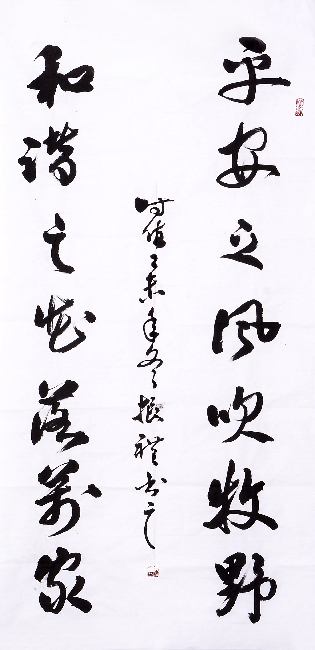 平安之風吹牧野
和谐之花落萬家
时值乙未年冬振禮书之